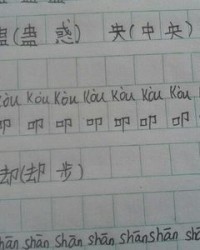 蛊(蛊惑) 央(中央)
Kòu Kòu Kòu Kòu Kòu Kòu
叩 叩 叩 叩 叩 叩
却(却步)
shān shān shān shān shān shān